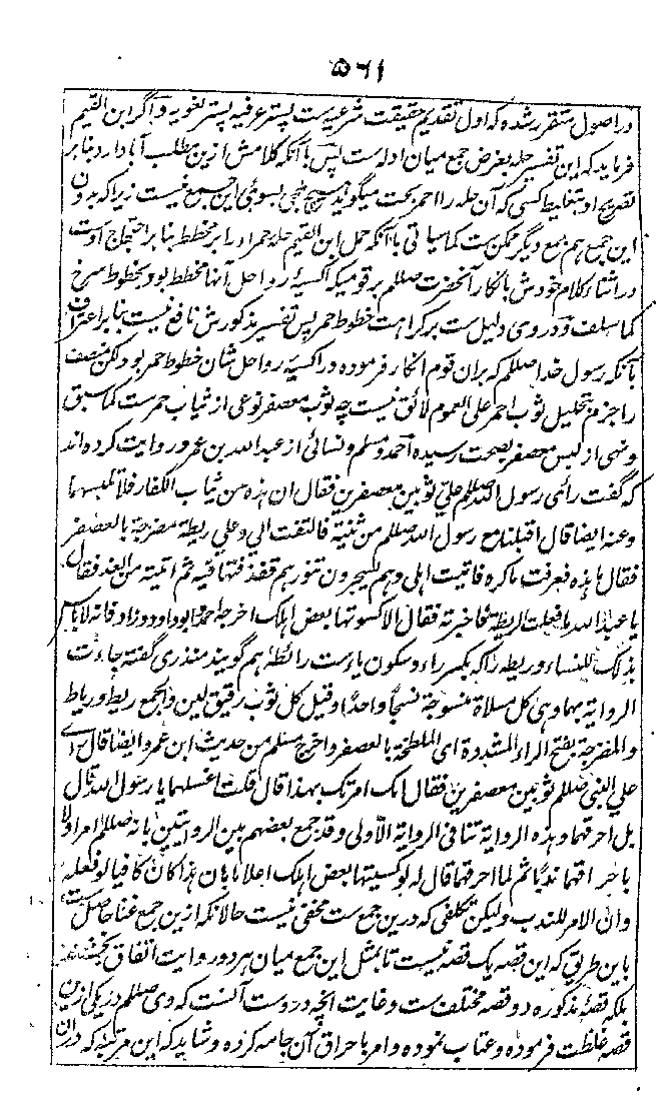 ۵۶۱
در اصول متقرر شده که اول تقدیم حقیقت شرعیه ست پستر عرفیه پستر لغویه و اگر ابن القیم
فرماید که این تفسیر حله بغرض جمع میان ادله ست پس باآنکه کلامش ازین مطلب آبا دارد بنابر
تصریح او بتغلیط کسی که آن حله را احمر بحت میگوید هیچ ملجی بسوی این جمع نیست زیرا که بدون
این جمع هم جمع دیگر ممکن ست کما سیاتی باآنکه حمل ابن القیم حله حمرا را بر مخطط بنابر احتجاج اوست
در اثناء کلام خودش بانکار آنحضرت صللم بر قومیکه اکسیهٔ رواحل آنها مخطط بود بخطوط سرخ
کما سلف و در وی دلیل ست بر کراهت خطوط حمر پس تفسیر مذکورش نافع نیست بنابر اعتراف
بآنکه رسول خدا صللم که بران قوم انکار فرموده در اکسیهٔ رواحل شان خطوط حمر بود لکن منصف
را جزم بتحلیل ثوب احمر علی العموم لائق نیست چه ثوب معصفر نوعی از ثیاب حمرست کما سبق
و نهی از لبس معصفر بصحت رسیده احمد و مسلم و نسائی از عبد الله بن عمرو روایت کرده اند
که گفت رأی رسول الله صللم علی ثوبین معصفرین فقال ان هذه من ثیاب الکفار فلا تلبسهما
و عنه ایضا قال اقبلنا مع رسول الله صللم من ثنیة فالتفت الی و علی ریطة مضرجة بالعصفر
فقال ما هذه فعرفت ما کره فاتیت اهلی و هم یسجرون تنورهم فقذفتها فیه ثم اتیته من الغد فقال
یا عبد الله ما فعلت الریطة فاخبرته فقال الا کسوتها بعض اهلک اخرجه احمد و ابو داود و زاد فانه لا باس
بذلک للنساء و ریطه را که بکسر راء و سکون یاءست رائطه هم گویند منذری گفته جاءت
الروایة بها و هی کل ملاءة منسوجة نسجا واحدا و قیل کل ثوب رقیق لین و الجمع ریط و ریاط
و المضرجة بفتح الراء المشددة ای الملطخة بالعصفر و اخرج مسلم من حدیث ابن عمر و ایضا قال رای
علی النبی صللم ثوبین معصفرین فقال امک امرتک بهذا قال قلت اغسلهما یا رسول الله قال
بل احرقهما و هذه الروایة تنافی الروایة الاولی و قد جمع بعضهم بین الروایتین بانه صللم امر اولا
باحراقهما ندبا ثم لما احرقهما قال له لو کسیتها بعض اهلک اعلاما بان هذا کان کافیا لو فعله
و ان الامر للندب و لیکن تکلفی که درین جمع ست مخفی نیست حالانکه ازین جمع غنا حاصل ست
باین طریق که این قصه یک قصه نیست تا بمثل این جمع میان هر دو روایت اتفاق بخشند
بلکه قصهٔ مذکوره دو قصه مختلف ست و غایت انچه دروست آنست که وی صللم در یکی ازین
قصه غلظت فرموده و عتاب نموده و امر باحراق آن جامه کرده و شاید که این مرتبه که دران